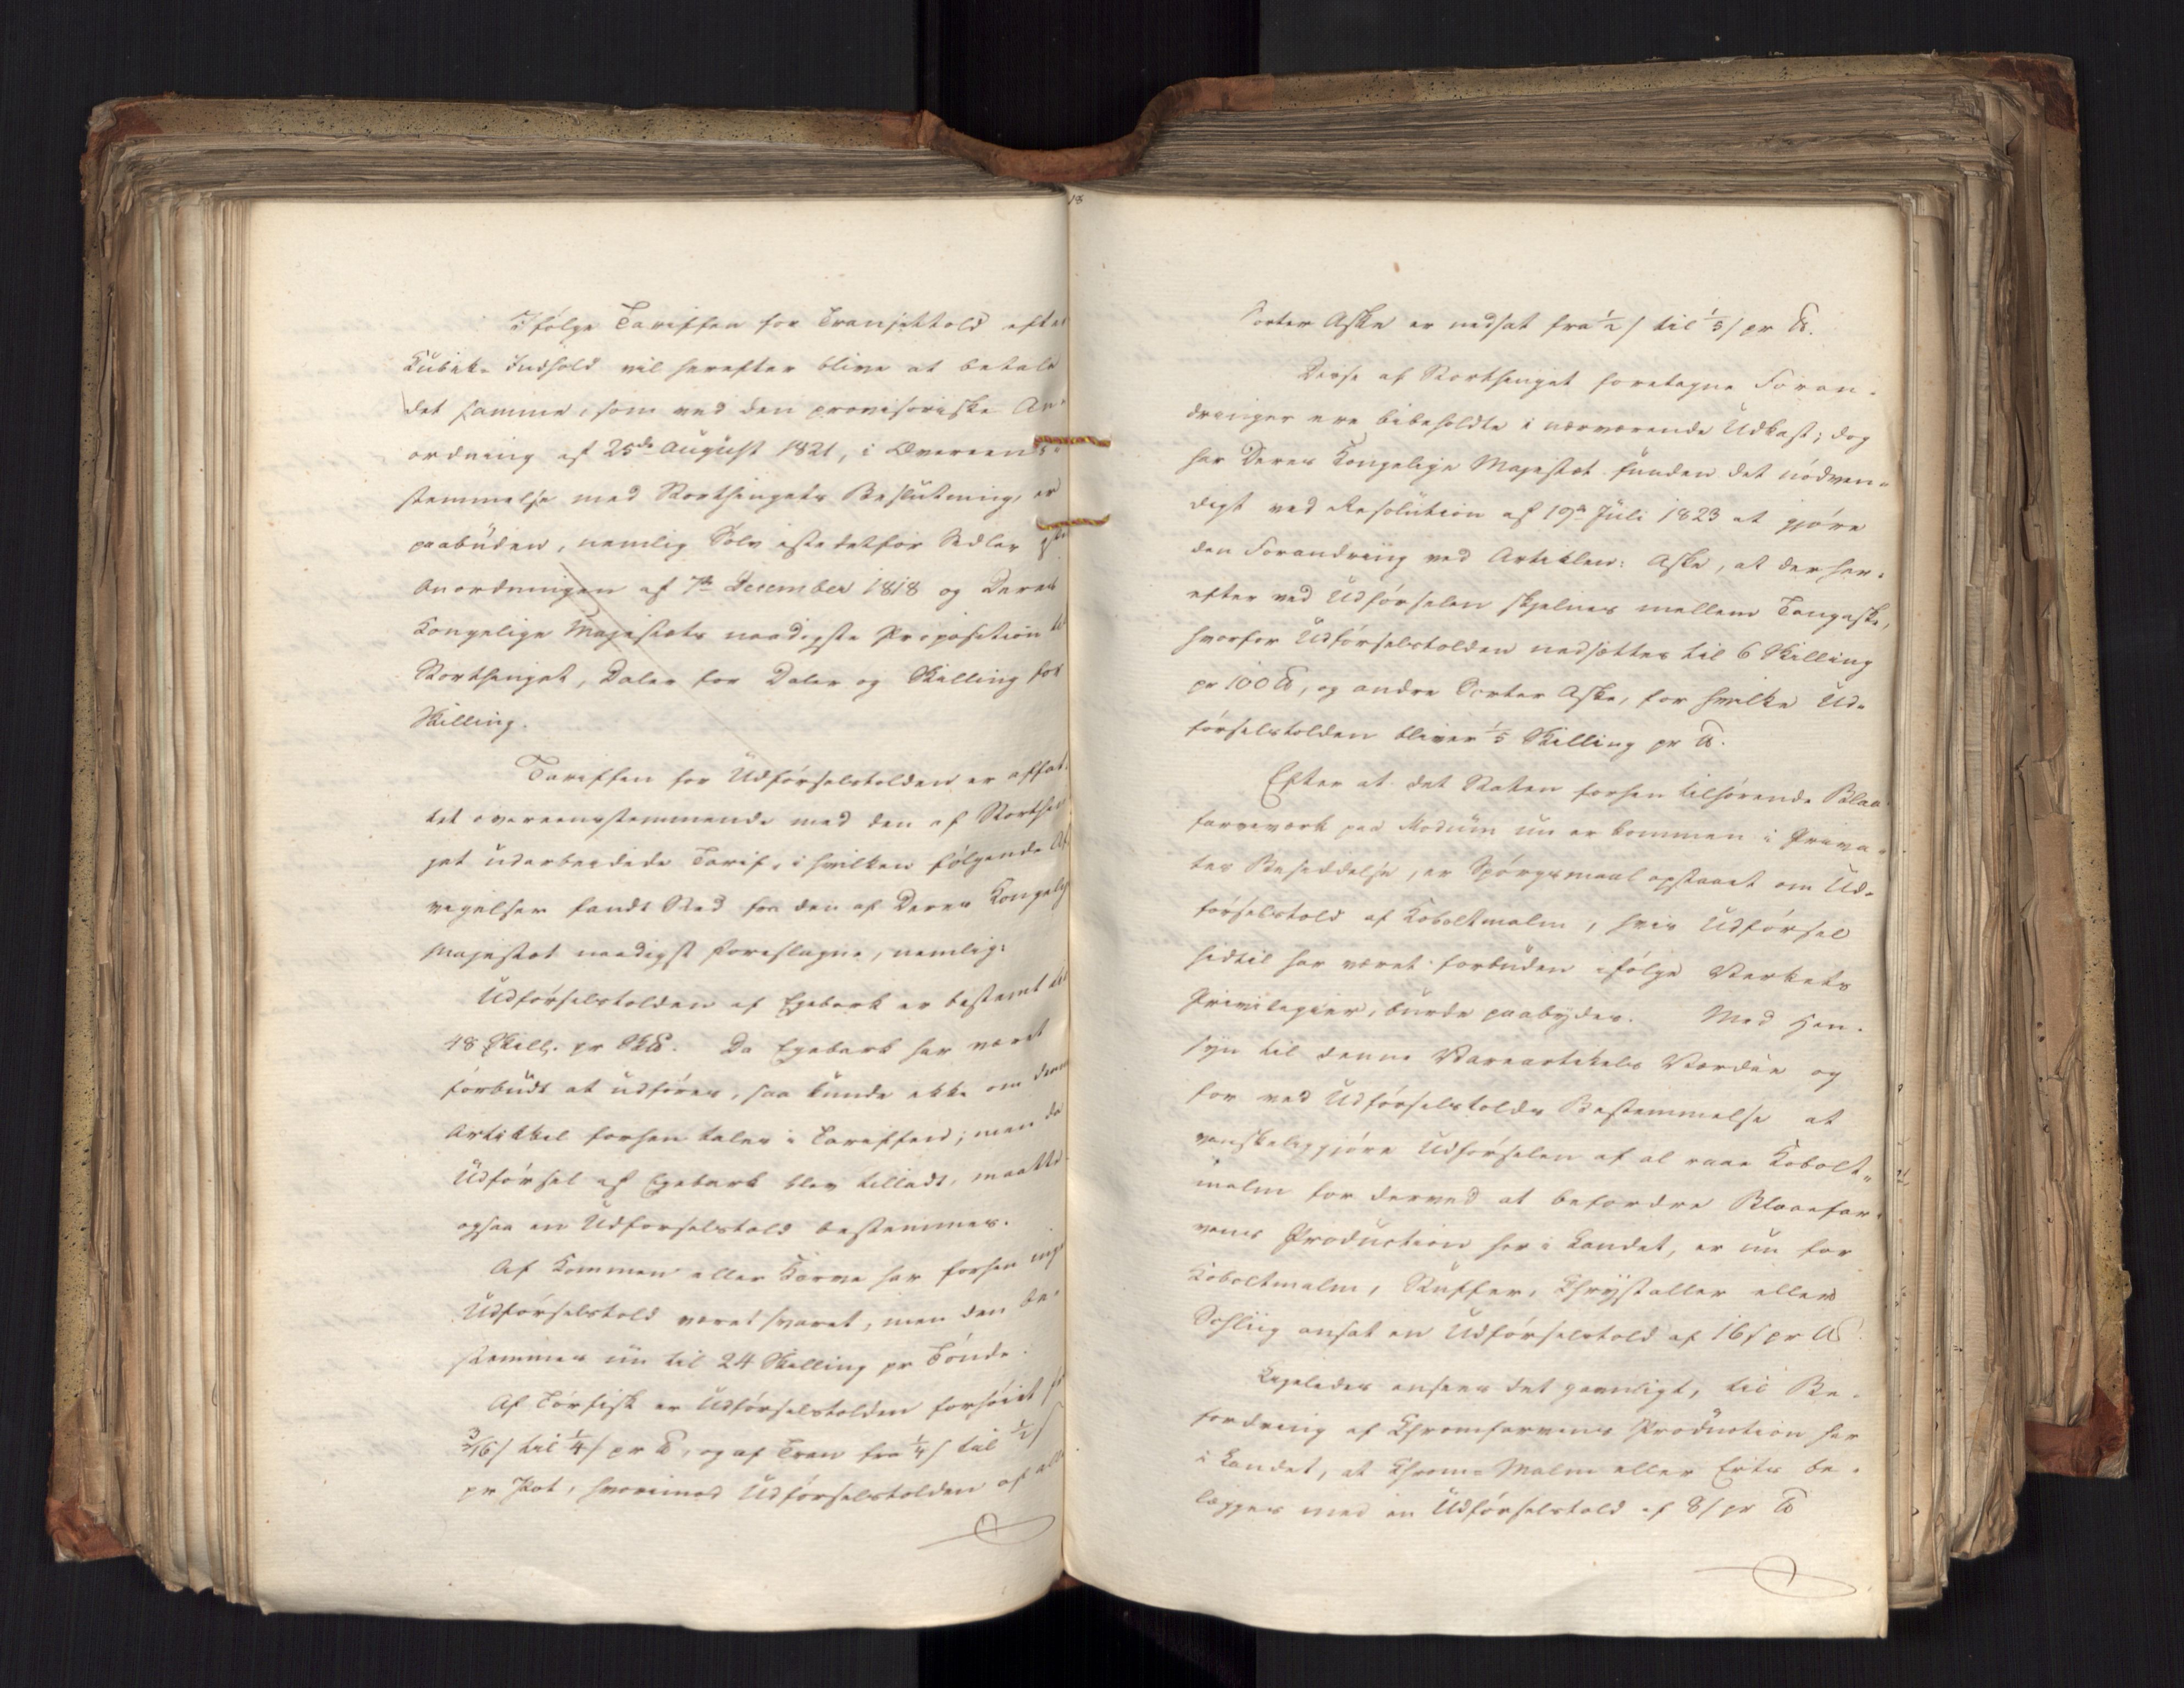 Ifølge Tariffen for Transittold efter
Kubik-Indhold vil herefter blive at betale
det samme, som ved den provisoriske An-
ordning af 25de August 1821, i Overeens-
stemmelse med Storthingets Beslutning, er
paabuden, nemlig Sølv istedetfor Sedler
Anordningen af 7de December 1818 og Deres
Kongelige Majestæts naadigste Proposition til
Storthinget, Daler for Daler og Skilling for
Skilling.
Tariffen for Udførselstolden er affat-
tet overeensstemmende med den af Storthin-
get udarbeidede Tarif, i hvilken følgende Af-
vigelser fandt Sted fra den af Deres Kongelige
Majestæt naadigst foreslagne, nemlig:
Udførselstolden af Egebark er bestemt til
48 Skill. pr Sk℔. Da Egebark har været
forbudt at udføres, saa kunde ikke om denne
Artikkel forhen tales i Tariffen; men da
Udførsel af Egebark blev tilladt, maatte
ogsaa en Udførselstold bestemmes.
Af Kommen eller Karve har forhen ingen
Udførselstold været svaret, men den be-
stemmes nu til 24 Skilling pr Tønde.
Af Tørfisk er Udførselstolden forhøiet fra
3/16 s til 1/4 s pr ℔, og af Tran fra 1/4 s til 1/2 s
pr Pot, hvorimod Udførselstolden af alle
18
Sorter Aske er nedsat fra 1/2 s til 1/5 s pr ℔.
Disse af Storthinget foretagne Foran-
dringer ere bibeholdte i nærværende Udkast; dog
har Deres Kongelige Majestæt funden det nødven-
digt ved Resolution af 19de Juli 1823 at gjøre
den Forandring ved Artiklen: Aske, at der her-
efter ved Udførselen skjelnes mellem Tangaske,
hvorfor Udførselstolden nedsættes til 6 Skilling
pr 100 ℔, og andre Sorter Aske, for hvilke Ud-
førselstolden bliver 1/5 Skilling pr ℔.
Efter at det Staten forhen tilhørende Blaa-
farveværk paa Modum nu er kommen i Priva-
tes Besiddelse, er Spørgsmaal opstaaet om Ud-
førselstold af Koboltmalm, hvis Udførsel
hidtil har været forbuden ifølge Værkets
Privilegier, burde paabydes. Med Hen-
syn til denne Vareartikels Værdie og
for ved Udførselstolds Bestemmelse at
vanskeliggjøre Udførselen af al raae Kobolt-
malm for derved at befordre Blaaefar-
vens Production her i Landet, er nu for
Koboltmalm, Stuffer, Chrystaller eller
Schliig ansat en Udførselstold af 16 s pr ℔
Ligeledes ansees det gavnligt, til Be-
fordring af Chromfarvens Production her
i Landet, at Chrom-Malm eller Erts be-
lægges med en Udførselstold af 8 s pr ℔